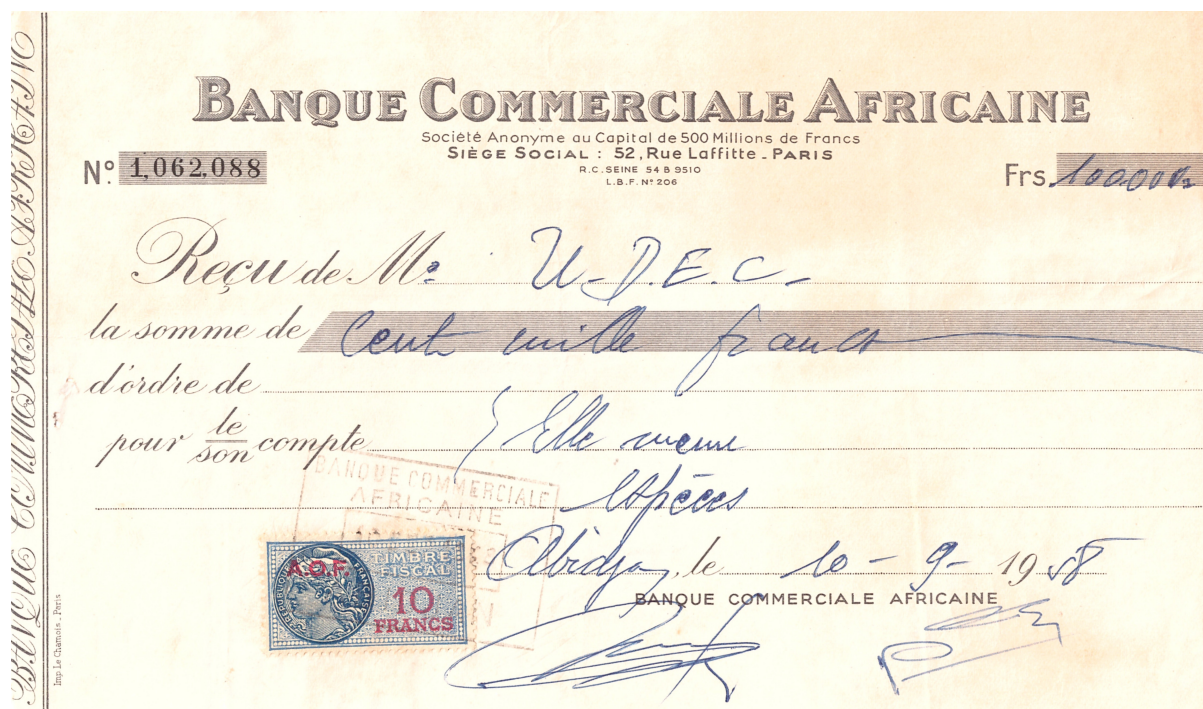 BANQUE COMMERCIALE AFRICAINE
BANQUE COMMERCIALE AFRICAINE
Société Anonyme au Capital de 500 Millions de Francs
SIÈGE SOCIAL : 52, Rue Laffitte - PARIS
R.C. SEINE 54 B 9510
L.B.F. N° 206
N° 1,062,088
Frs. 100.000
Reçu de M. U.D.E.C.
la somme de Cent mille francs
d'ordre de
pour le/son compte Elle meme
espèces
BANQUE COMMERCIALE
AFRICAINE
A.O.F.
TIMBRE
FISCAL
RÉPUBLIQUE FRANÇAISE
10
FRANCS
Abidjan, le 10-9-1958
BANQUE COMMERCIALE AFRICAINE
Imp. Le Chamois_Paris